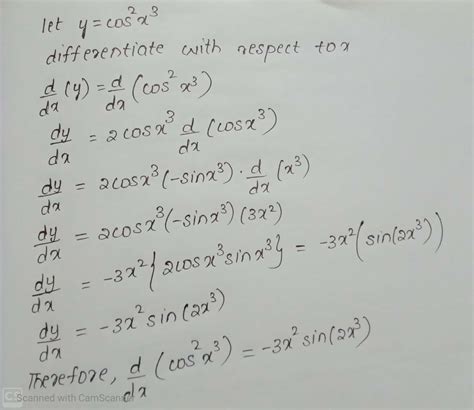 let y = cos²x³
differentiate with respect to x
d/dx (y) = d/dx (cos²x³)
dy/dx = 2cosx³ d/dx (cosx³)
dy/dx = 2cosx³(-sinx³) · d/dx (x³)
dy/dx = 2cosx³(-sinx³)(3x²)
dy/dx = -3x²{2cosx³sinx³} = -3x²(sin(2x³))
dy/dx = -3x² sin(2x³)
Therefore, d/dx (cos²x³) = -3x² sin(2x³)
CS Scanned with CamScanner